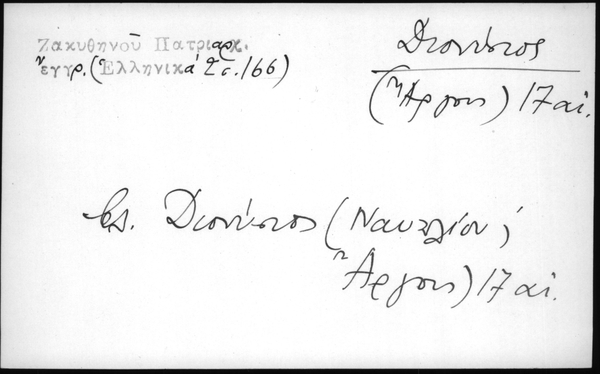 Ζακυθηνοῦ Πατριαρχ.
ἔγγρ. (Ἑλληνικά 2 σ. 166)
Διονύσιος
(Ἄργους) 17 αἰ.
βλ. Διονύσιος (Ναυπλίου;
Ἄργους) 17 αἰ.